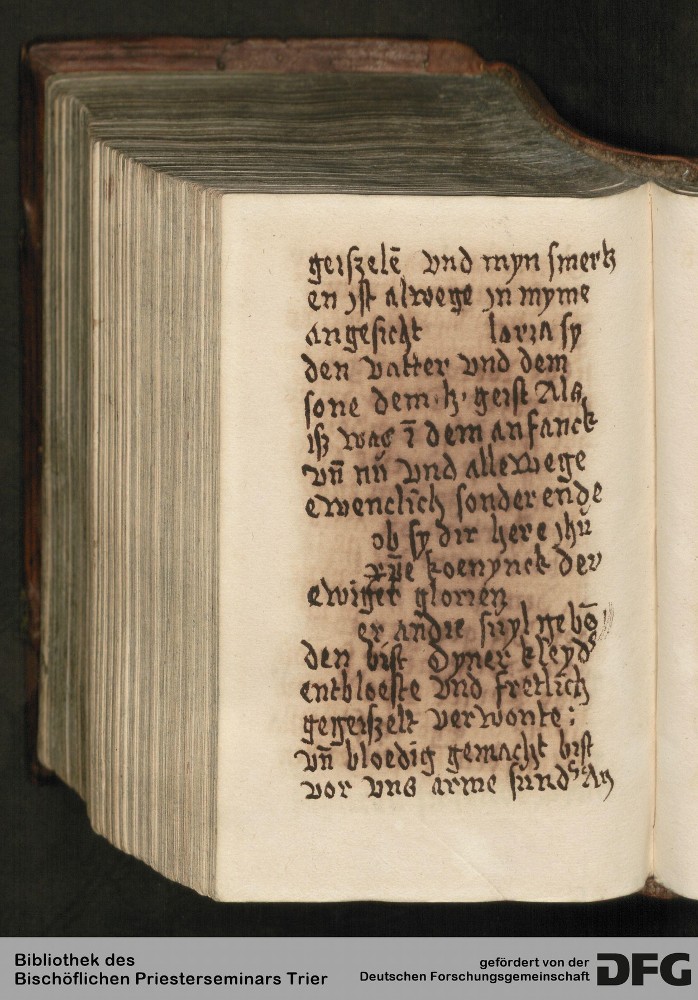 geiszelē vnd myn smertz
en jst alwege jn myme
angesicht loria sy
den vatter vnd dem
sone dem · h · geist Als
isz was ī dem anfanck
vn̄ nū vnd allewege
ewenclich sonder ende
ob sy dir here jhū
xp̄e koenynck der
ewiger glorien
er an die suyl gebō
den bist dyner kleyd
entbloeste vnd fretlich
gegeiszelt verwonte :
vn̄ bloedig gemacht bist
vor vns arme sund
Bibliothek des
Bischöflichen Priesterseminars Trier
gefördert von der
Deutschen Forschungsgemeinschaft
DFG